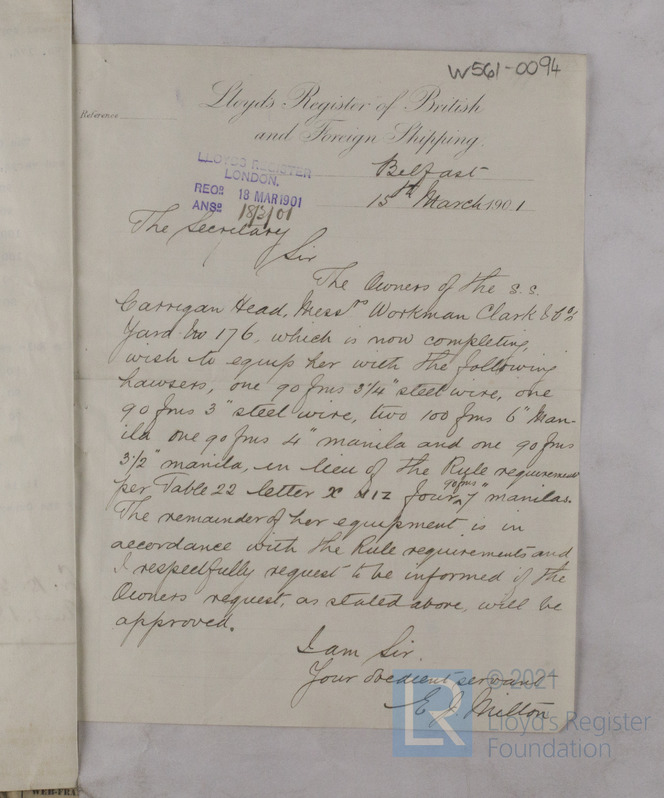 W561-0094
Lloyds Register of British
and Foreign Shipping.
Reference
Belfast
15th March 1901
LLOYD'S REGISTER
LONDON.
RECD 18 MAR 1901
ANSD 18/3/01
The Secretary
Sir
The Owners of the S.S.
Carrigan Head, Messrs Workman Clark & Co's
Yard No 176, which is now completing,
wish to equip her with the following
hawsers, one 90 fms 3 1/4" steel wire, one
90 fms 3" steel wire, two 100 fms 6" Man-
ila one 90 fms 4" manila and one 90 fms
3 1/2" manila, in lieu of the Rule requirements
per Table 22 letter x viz four 90 fms 7" manilas.
The remainder of her equipment is in
accordance with the Rule requirements and
I respectfully request to be informed if the
Owners request, as stated above, will be
approved.
I am Sir.
Your obedient servant
E J Milton
© 2021
LR
Lloyd's Register
Foundation
WEB-FRA